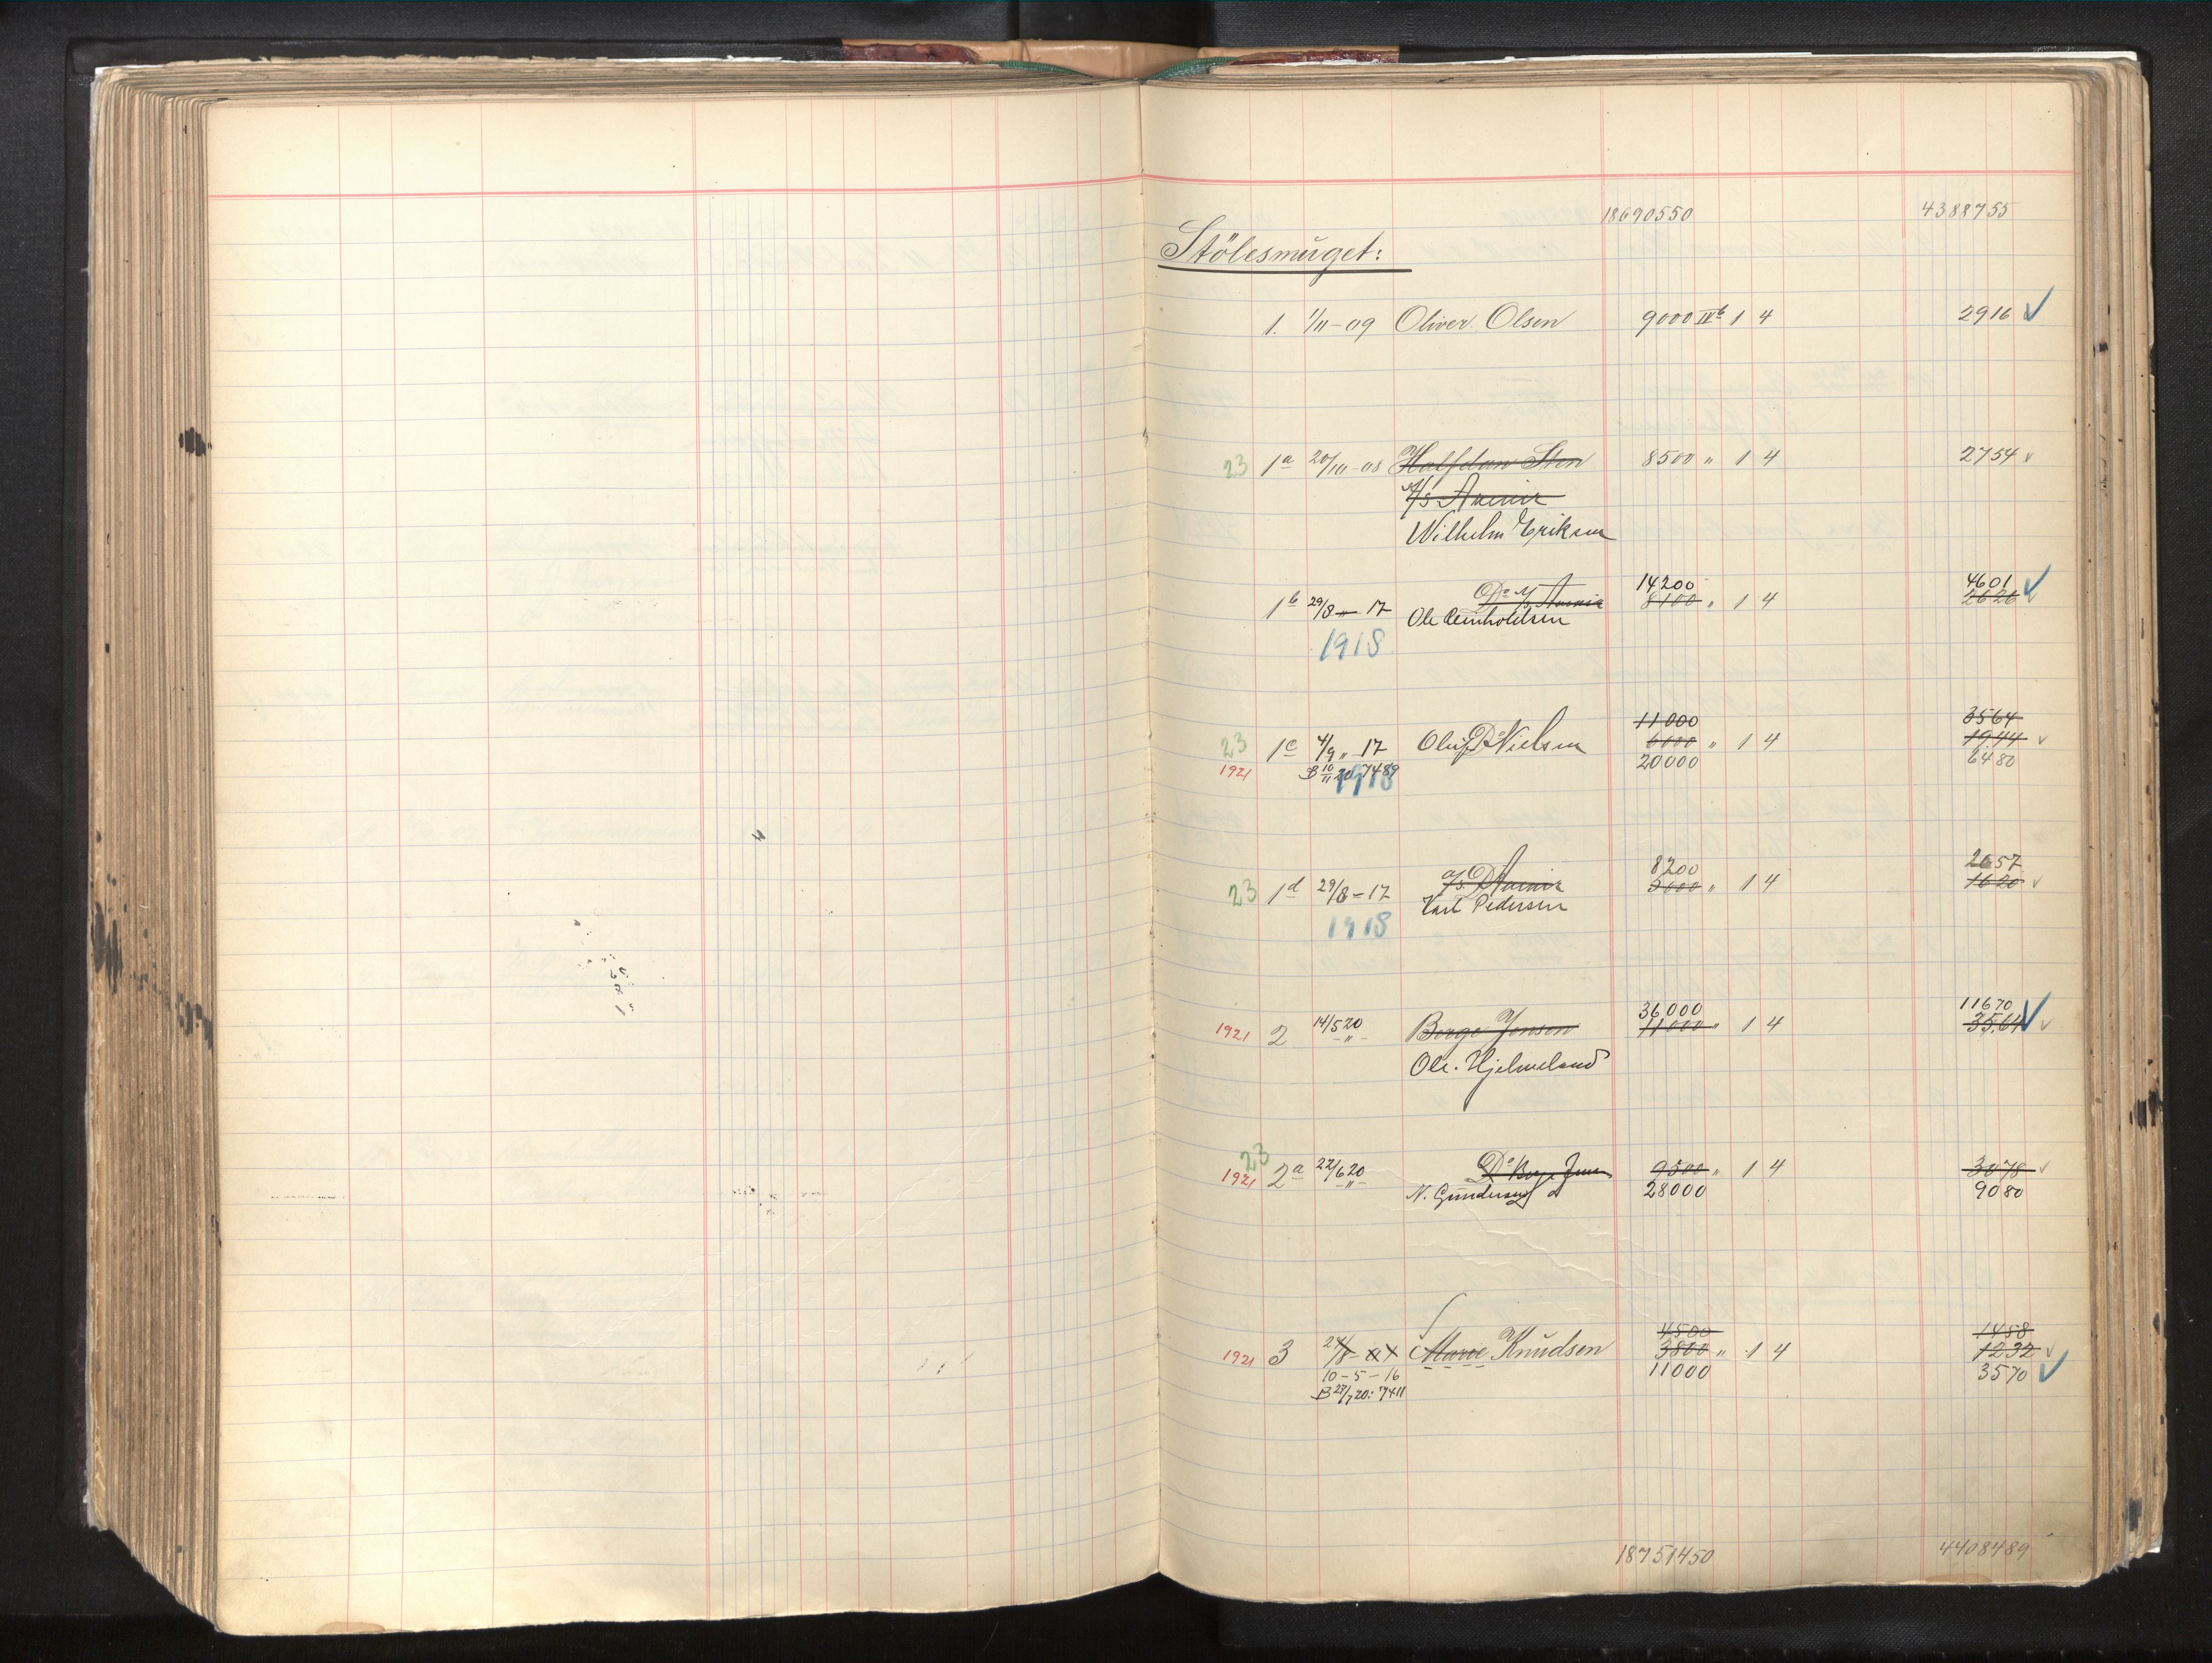 18690550 4388755
Stölesmuget:
1. 1/11-09 Oliver Olsen 9000 IVb 1 4 2916
23 1a 20/10-08 Halfdan Sten 8500 " 1 4 2754
A/s
Wilhelm Eriksen
14200 4601
1b 29/8 - 17 Do A/s 8100 " 1 4 2626
Ole Reinholdsen
1918
11000 3564
23 1c 4/9 " 17 Oluf Do Nielsen 6000 " 1 4 1944
1921 B 10/11 20, 7489 20000 6480
1918
8200 2657
23 1d 29/8-17 A/s Do 5000 " 1 4 1620
Karl Pedersen
1918
36000 11670
1921 2 14/5 20 Berge Jensen 11000 " 1 4 3564
-"- Ole Hjelmeland
23
1921 2a 22/6 20 Do Berge Jensen 9500 " 1 4 3078
-"- N. Gundersen 28000 9080
4500 1458
1921 3 Knudsen 3800 " 1 4 1232
10-5-16 11000 3570
B 27/7 20: 7411
18751450 4408489